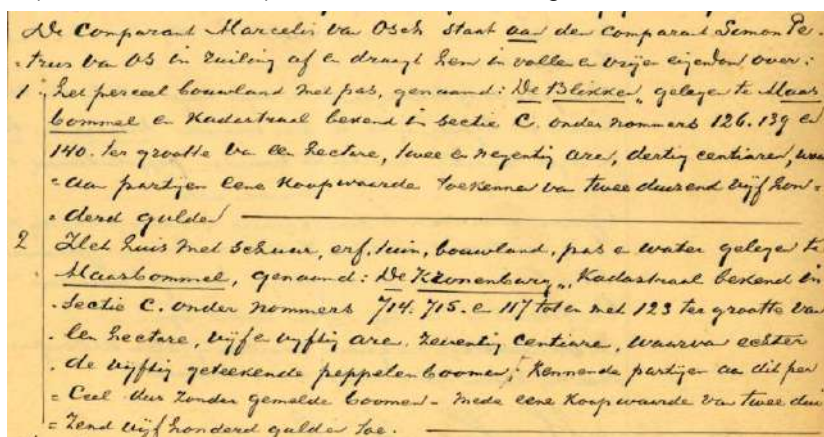 De Comparant Marcelis van Osch staat aan den Comparant Simon Pe-
=trus van Os in ruiling af en draagt hem in vollen en vrijen eigendom over:
1 Het perceel bouwland met pas, genaamd: „De Blikke„ gelegen te Maas
bommel en Kadastraal bekend in Sectie C. onder nommers 126. 139 en
140. ter grootte van een hectare, twee en negentig are, dertig centiaren, waar
=aan partijen eene Koopwaarde toekennen van twee duizend vijf hon=
=derd gulden
2 Het huis met schuur, erf, tuin, bouwland, pas en water gelegen te
Maasbommel, genaamd: „De Kronenburg„, Kadastraal bekend in
Sectie C. onder nommers 714. 715. en 117 tot en met 123 ter grootte van
een hectare, vijf en vijftig are, zeventig centiare, waarvan echter
de vijftig geteekende peppelen boomen; Kennende partijen aan dit per
=Ceel dus zonder gemelde boomen - mede eene Koopwaarde van twee dui
=zend vijf honderd gulden toe.